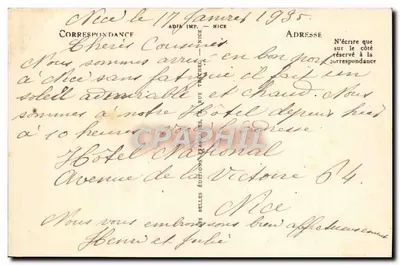 Nice le 17 Janvier 1935
ADIA IMP. - NICE
CORRESPONDANCE
ADRESSE
N'écrire que
sur le côté
réservé à la
correspondance
Chères Cousines
Nous sommes arrivés en bon port
à Nice sans fatigue il fait un
soleil admirable et chaud. Nous
sommes à notre Hôtel depuis hier
à 10 heures
Hôtel National
Avenue de la Victoire 64
Nice
Nous vous embrassons bien affectueusement
Henri et Julie
LES BELLES ÉDITIONS
NICE
CPArama.com